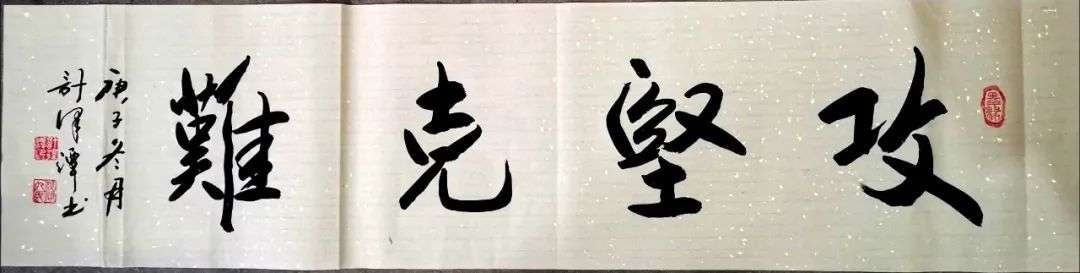 攻堅克難
庚子冬月
計澤潭書